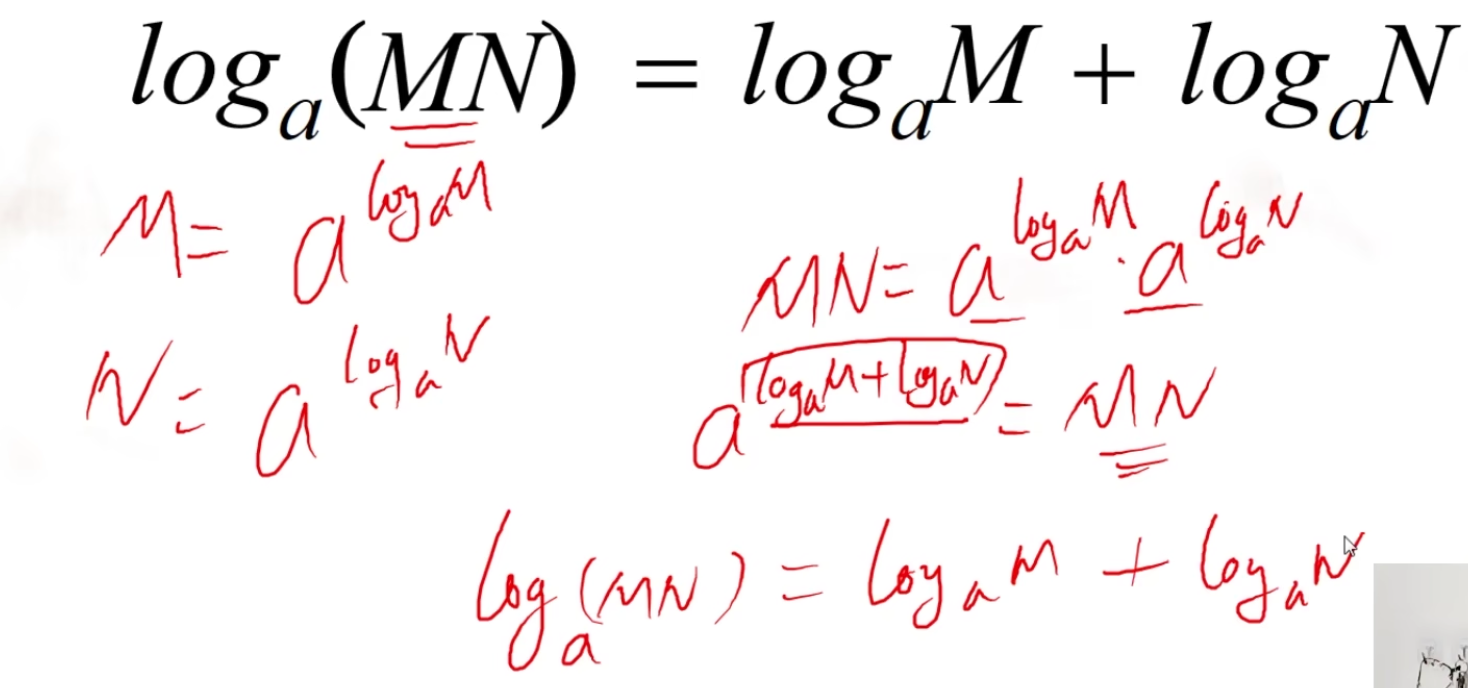 logₐ(MN) = logₐM + logₐN
M = a^(logₐM)
N = a^(logₐN)
MN = a^(logₐM) · a^(logₐN)
a^(logₐM + logₐN) = MN
logₐ(MN) = logₐM + logₐN